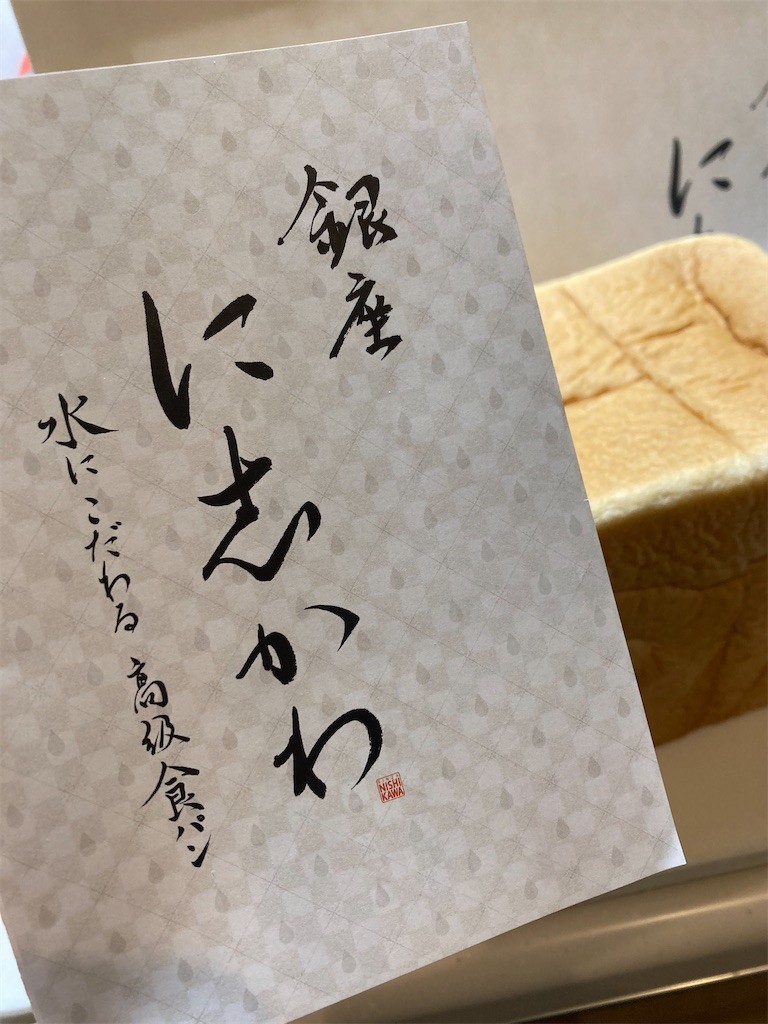 銀座
に志かわ
水にこだわる高級食パン
GINZA
NISHI
KAWA
に